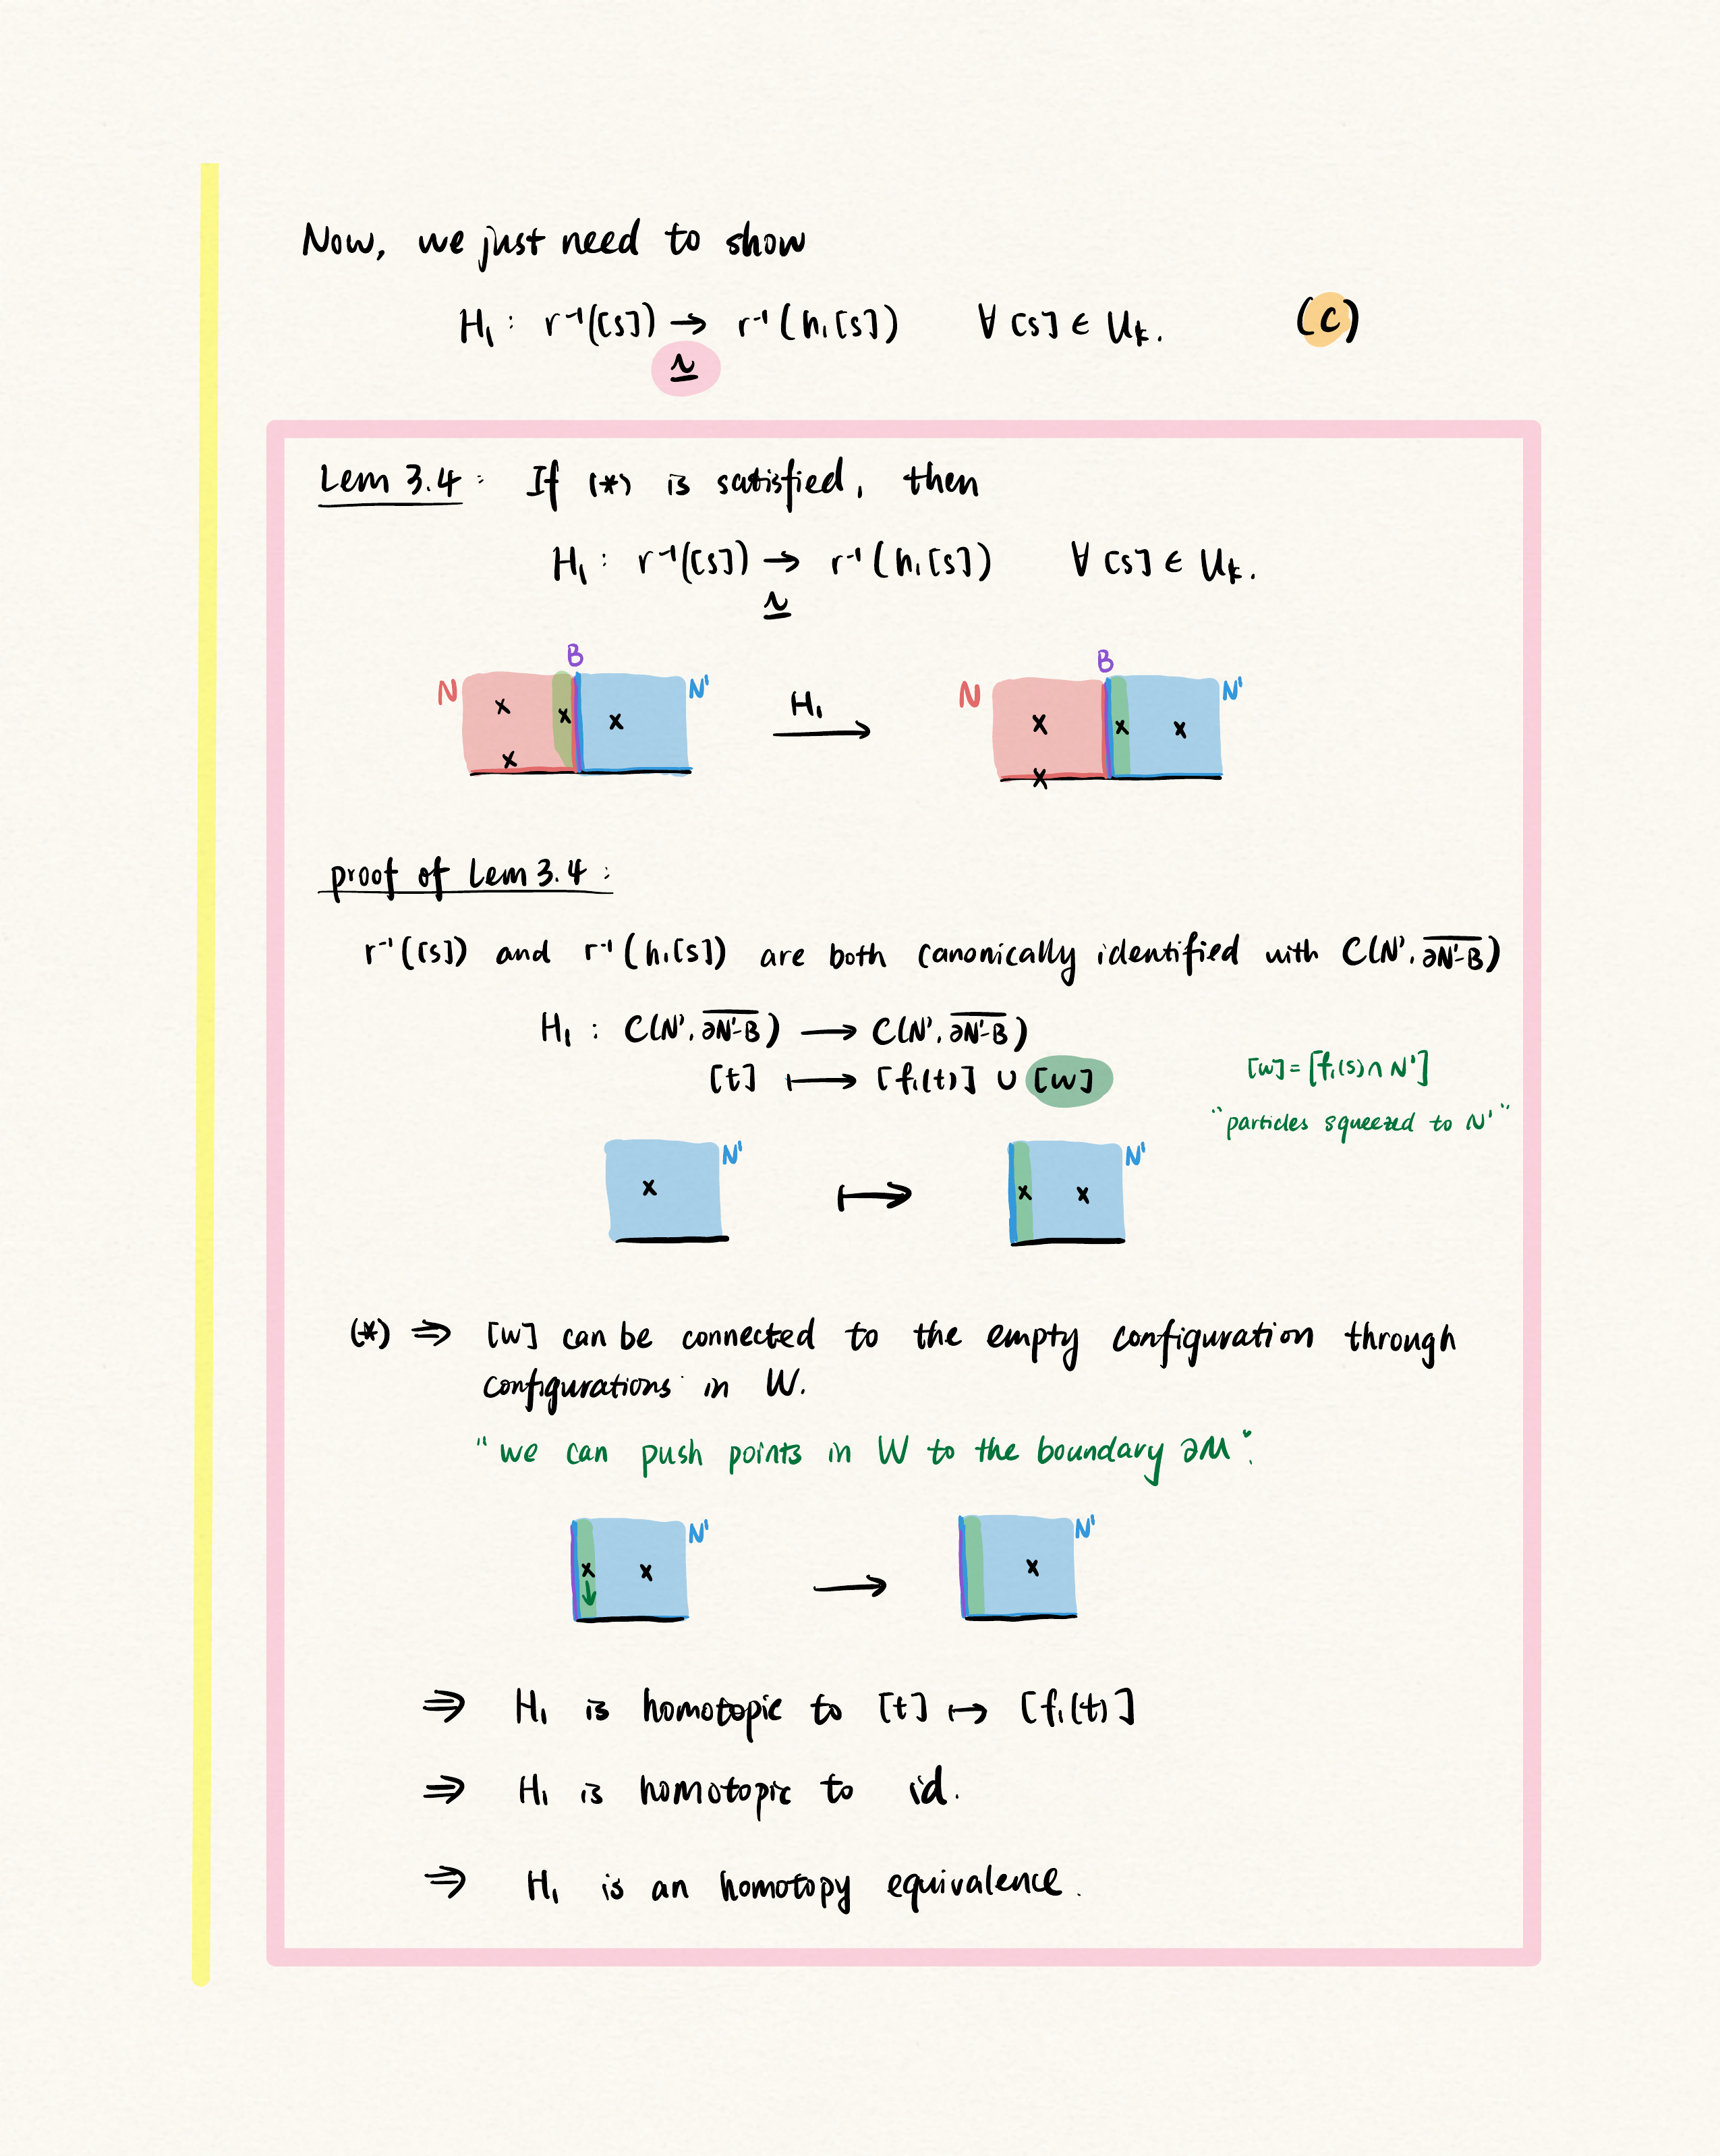 Now, we just need to show
H₁ : r⁻¹([s]) → r⁻¹(h₁[s]) ∀ [s] ∈ Uₖ. (c)
≃
Lem 3.4 : If (*) is satisfied, then
H₁ : r⁻¹([s]) → r⁻¹(h₁[s]) ∀ [s] ∈ Uₖ.
≃
N B N'
H₁
N B N'
proof of Lem 3.4 :
r⁻¹([s]) and r⁻¹(h₁[s]) are both canonically identified with C(N', \overline{∂N'-B})
H₁ : C(N', \overline{∂N'-B}) → C(N', \overline{∂N'-B})
[t] ↦ [f₁(t)] ∪ [w]
[w] = [f₁(s) ∩ N']
"particles squeezed to N'"
N' ↦ N'
(*) ⇒ [w] can be connected to the empty configuration through
configurations in W.
"we can push points in W to the boundary ∂M".
N' → N'
⇒ H₁ is homotopic to [t] ↦ [f₁(t)]
⇒ H₁ is homotopic to id.
⇒ H₁ is an homotopy equivalence.